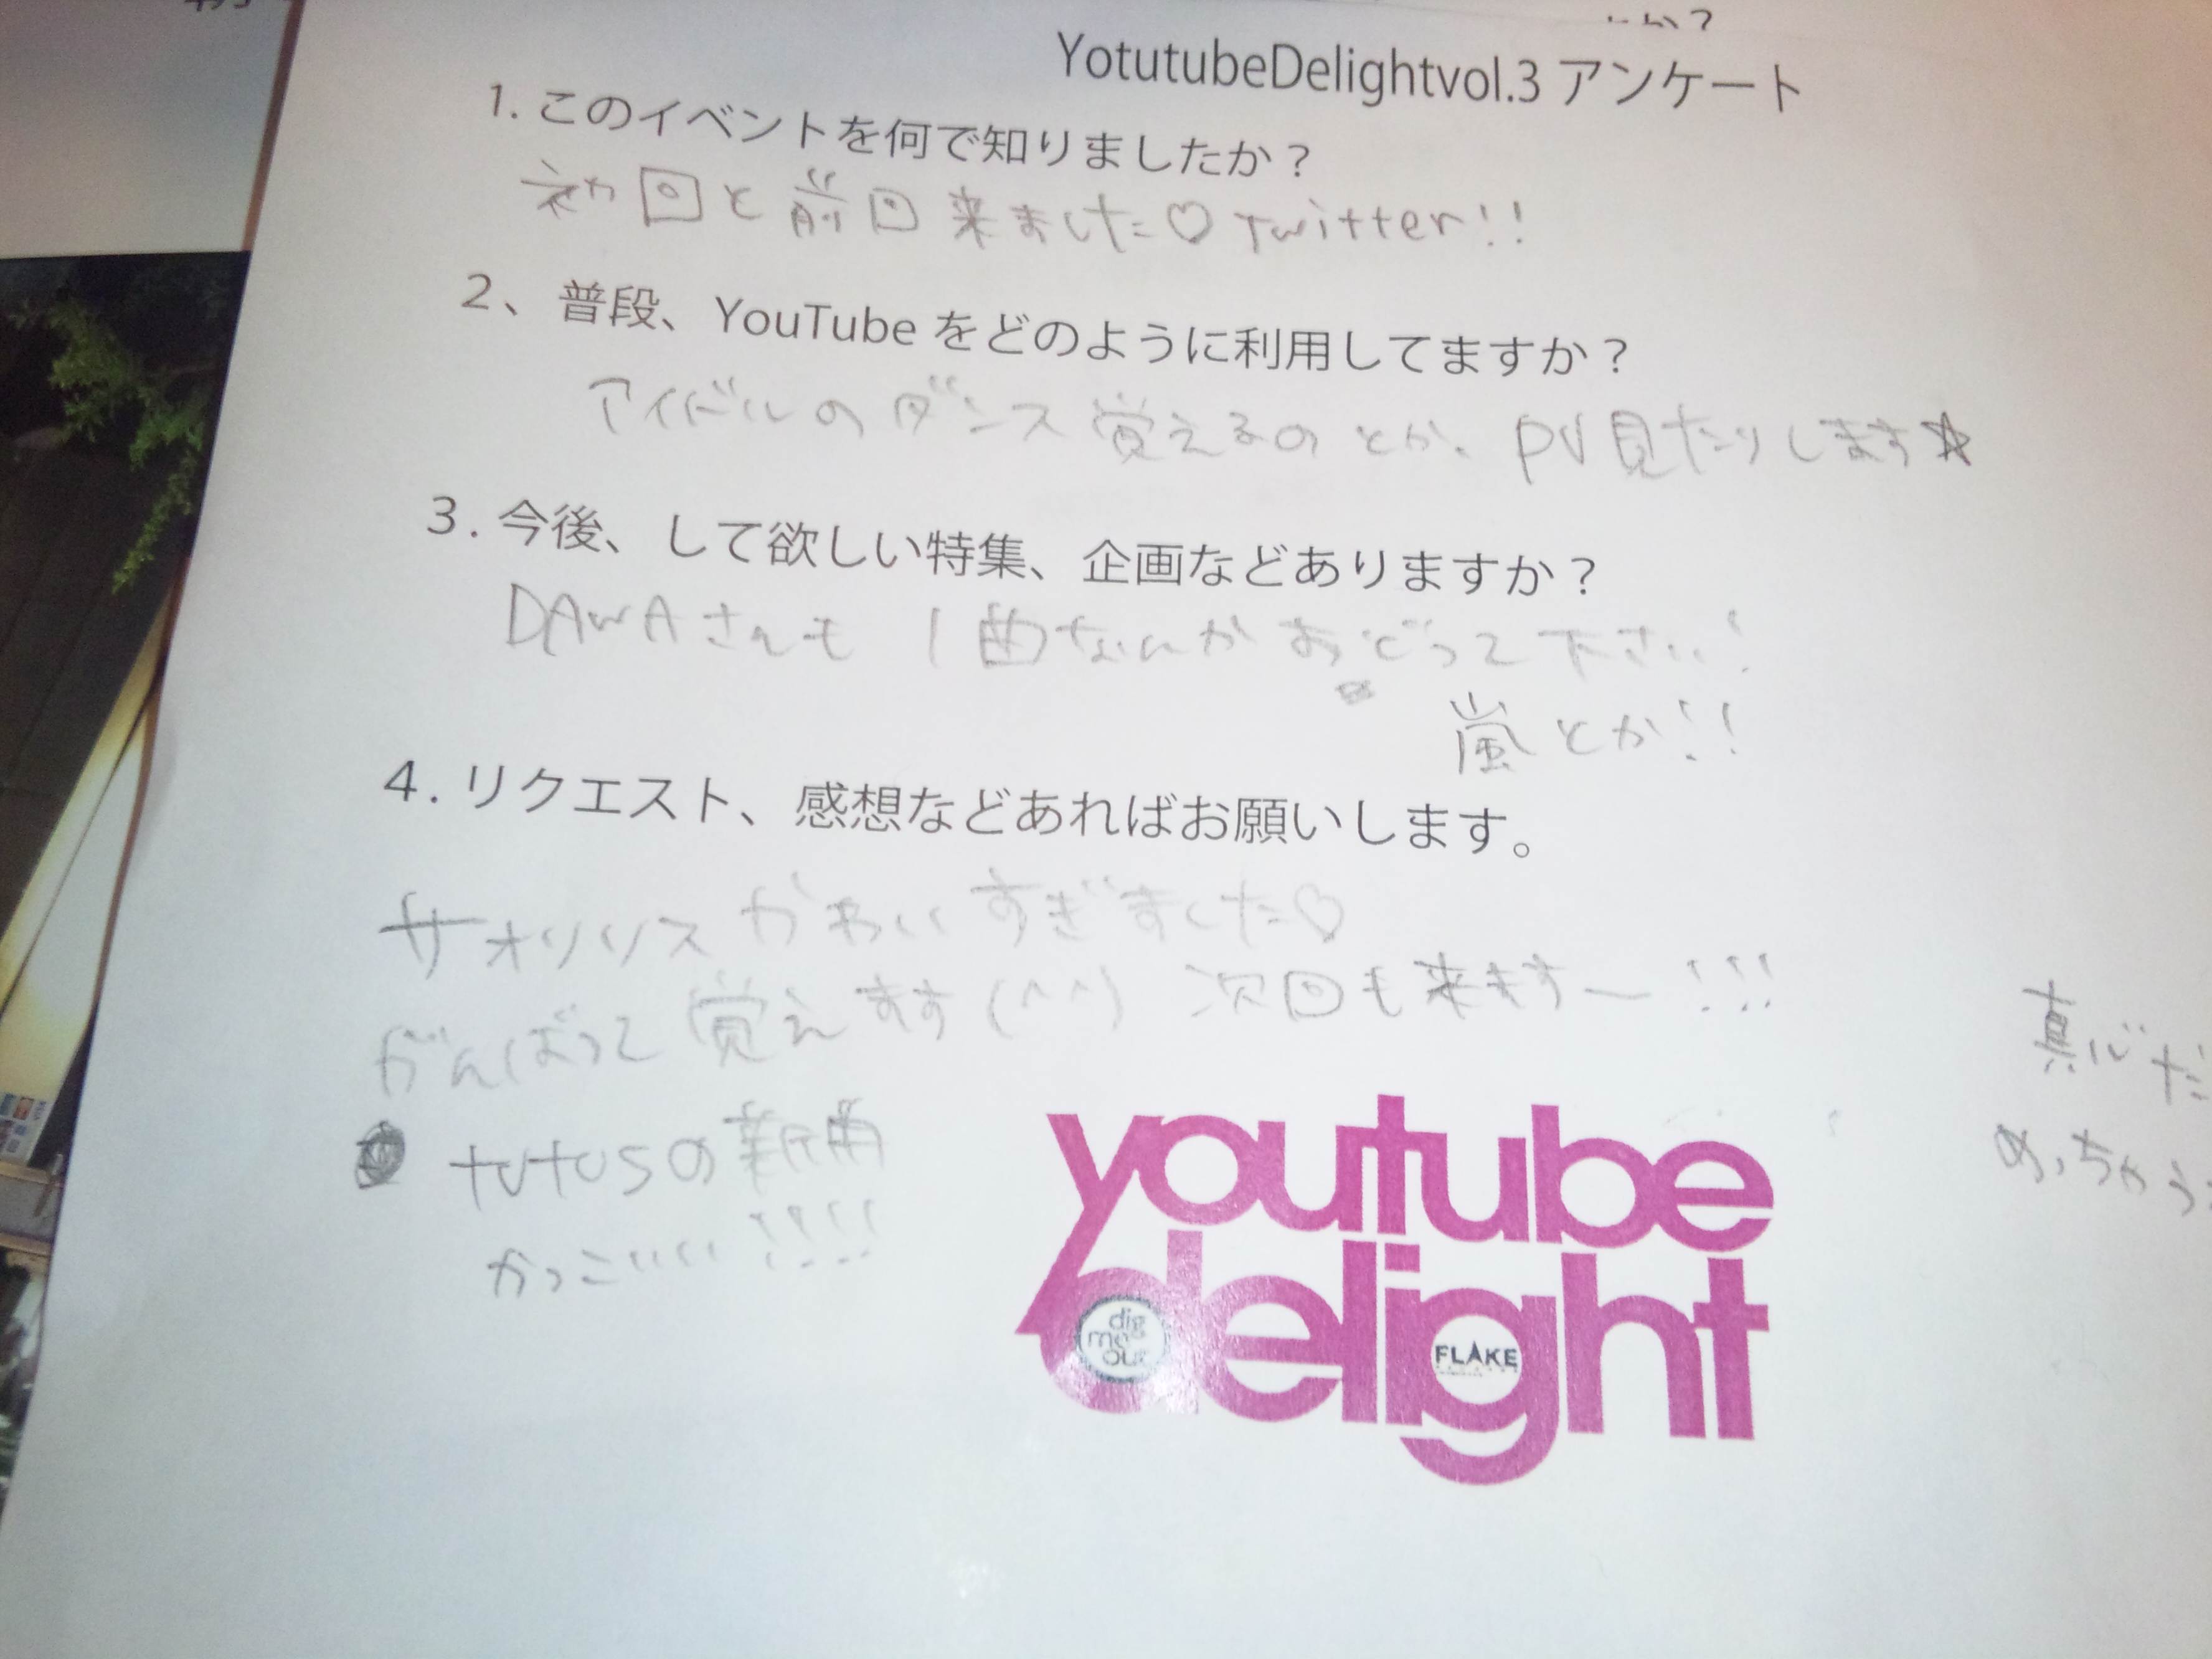 YotutubeDelightvol.3 アンケート
1. このイベントを何で知りましたか？
初回と前回来ました♡ Twitter!!
2、普段、YouTube をどのように利用してますか？
アイドルのダンス覚えるのとか、PV見たりします☆
3. 今後、して欲しい特集、企画などありますか？
DAWAさんも 1曲なんかおどって下さい!
嵐とか!!
4. リクエスト、感想などあればお願いします。
サオリリス かわいすぎました♡
がんばって覚えます(^^) 次回も来ますー!!!
tutusの新曲
かっこいい!!!!
youtube
delight
dig
me
out
FLAKE
めっちゃ